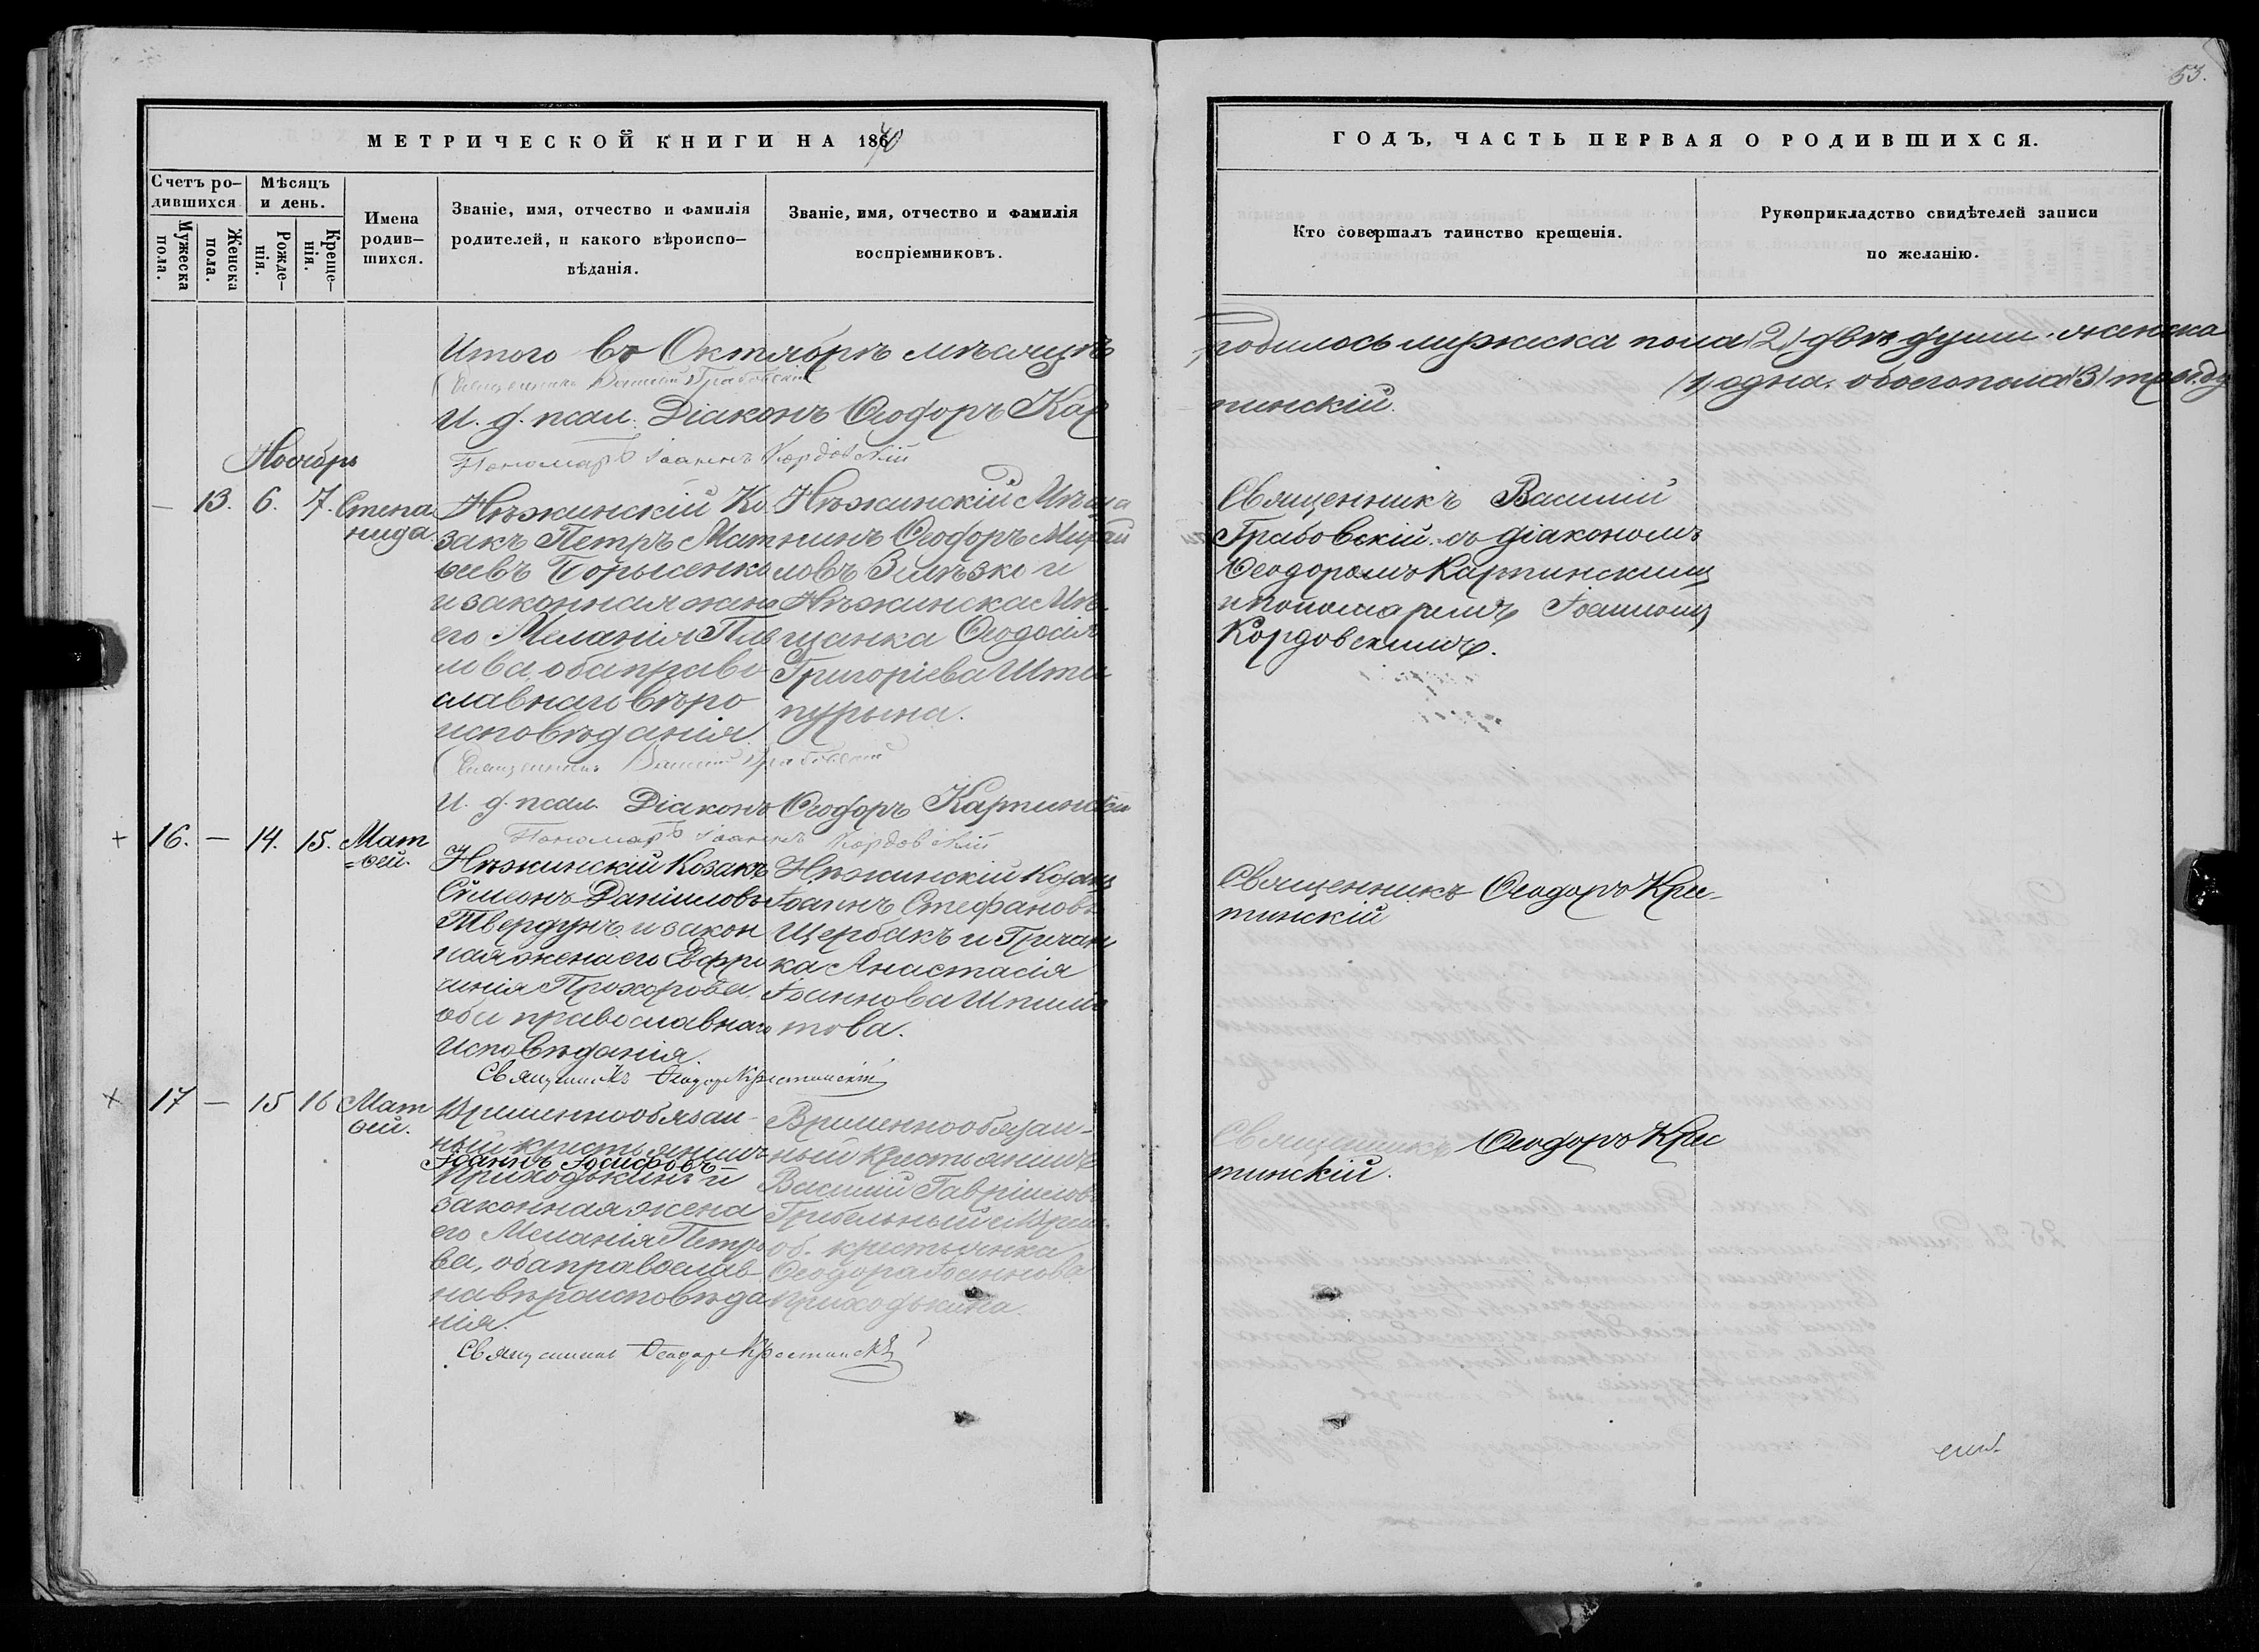 53.
МЕТРИЧЕСКОЙ КНИГИ НА 1870
ГОДЪ, ЧАСТЬ ПЕРВАЯ О РОДИВШИХСЯ.
Счетъ ро-
дившихся
Мужеска
пола.
Женска
пола.
Мѣсяцъ
и день.
Рожде-
нія.
Креще-
нія.
Имена
родив-
шихся.
Званіе, имя, отчество и фамилія
родителей, и какого вѣроиспо-
вѣданія.
Званіе, имя, отчество и фамилія
воспріемниковъ.
Кто совершалъ таинство крещенія.
Рукоприкладство свидѣтелей записи
по желанію.
Итого въ Октябрѣ мѣсяцѣ
родилось мужеска пола (2) двѣ души. женска
(1) одна. обоего пола (3) три
Священникъ Василій Грабовскій
И. д. псал. Діаконъ Ѳеодоръ Кар
пинскій.
Пономарь Іоаннъ Кордовскій
Ноябрь
— 13. 6. 7. Степа
нида.
Нѣжинскій Ко
закъ Петръ Мат
ѳеевъ Борысенко
и законная жена
его Меланія Пав
лова, оба право
славнаго вѣро
исповѣданія.
Нѣжинскій Мѣща
нинъ Ѳеодоръ Михаи
ловъ и
Нѣжинска Мѣ-
щанка Ѳеодосія
Григоріева
Священникъ Василій
Грабовскій съ діакономъ
Ѳеодоромъ Карпинскимъ
и пономаремъ Іоанномъ
Кордовскимъ.
Священникъ Василій Грабовскій
И. д. псал. Діаконъ Ѳеодоръ Карпинскій
Пономарь Іоаннъ Кордовскій
+ 16. — 14. 15. Мат
=ѳей.
Нѣжинскій Козакъ
Сѵмеонъ Даниловъ
Твердунъ и закон
ная жена его Евфро
синія Прохорова,
оба православнаго
Исповѣданія.
Нѣжинскій Козакъ
Іоаннъ Стефановъ
Щербакъ и Гречан
ка Анастасія
Іоаннова
това.
Священникъ Ѳеодоръ Крес-
тинскій
Священникъ Ѳеодоръ Крестинскій
× 17 — 15 16 Мат
ѳей.
Временнообязан-
ный крестьянинъ
Іоаннъ Іосифовъ
Приходькинъ и
законная жена
его Меланія Петро
ва, оба православ-
на вѣроисповѣда
нія.
Временнообязан-
ный Крестьянинъ
Василій Гавріиловъ
Гребельный и Врем.
об. крестьянка
Ѳеодора Іоаннова
Приходькина.
Священникъ Ѳеодоръ Крес
тинскій.
Священникъ Ѳеодоръ Крестинскій